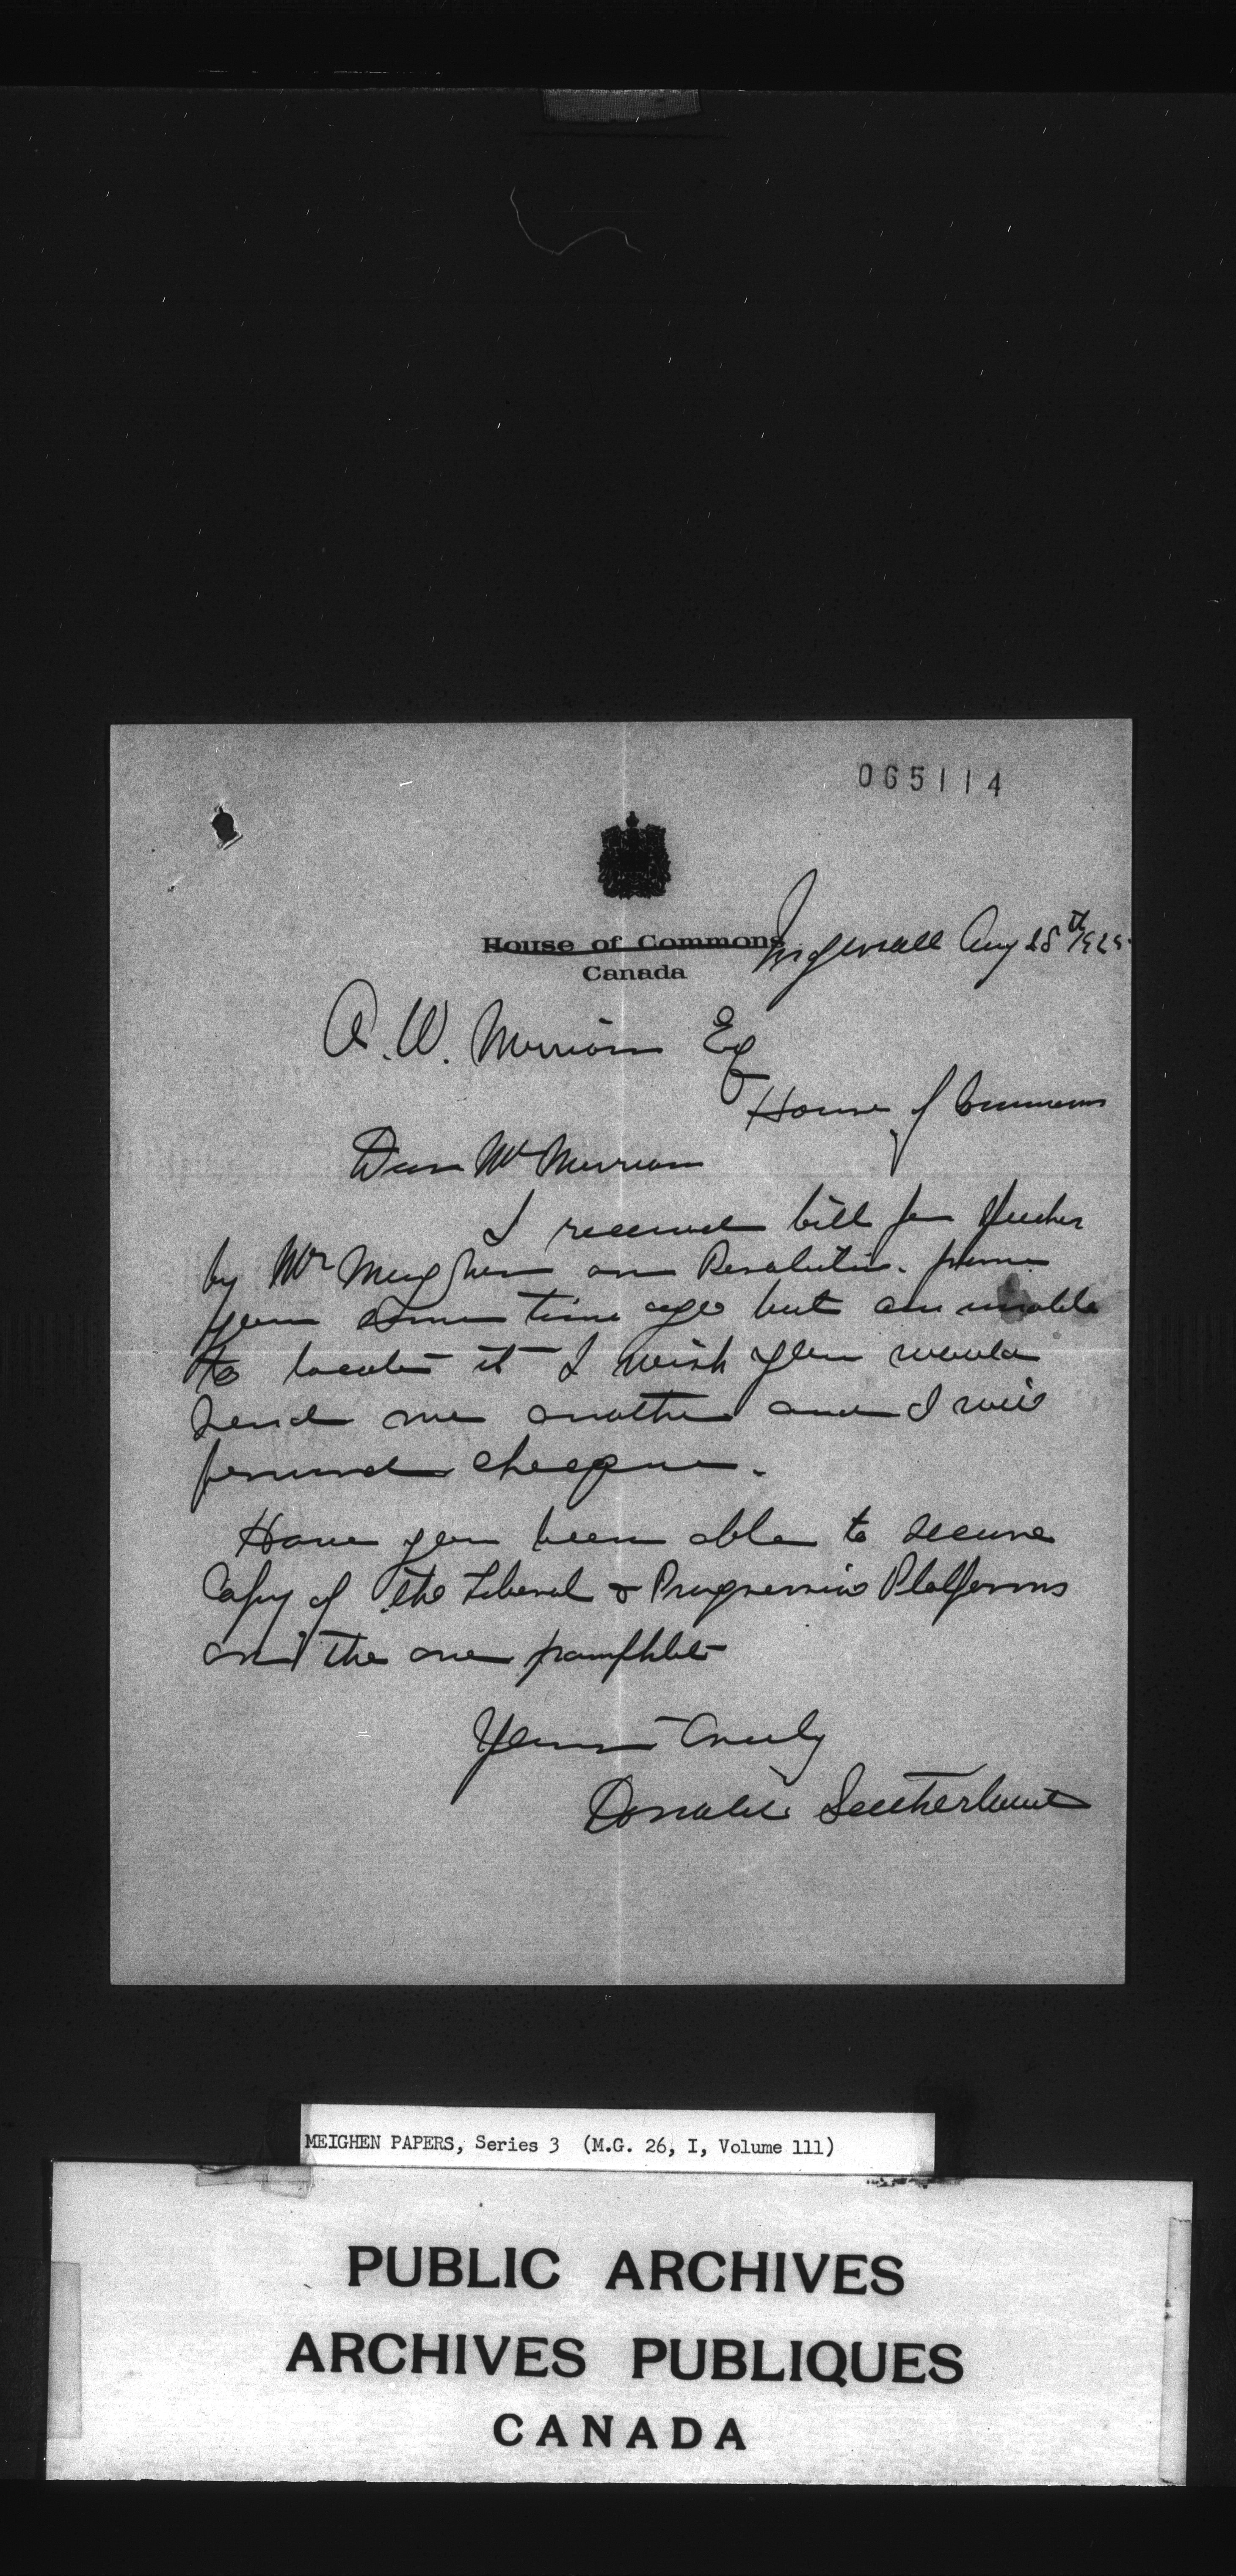 065114
House of Commons
Canada
Ingersoll Aug 28th 1925
A. W. Merriam Esq
House of Commons
Dear Mr Merriam
I received bill for Speeches
by Mr Meighen on Resolution from
you some time ago but am unable
to locate it I wish you would
send me another and I will
forward cheque.
Have you been able to secure
Copy of the Liberal & Progressive Platforms
in the one pamphlet
Yours truly
Donald Sutherland
MEIGHEN PAPERS, Series 3 (M.G. 26, I, Volume 111)
PUBLIC ARCHIVES
ARCHIVES PUBLIQUES
CANADA